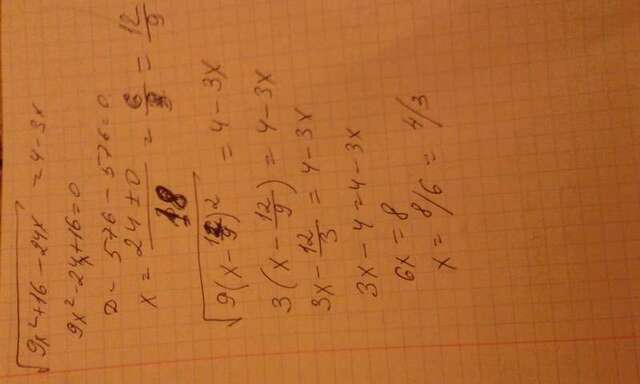 √(9x²+16-24x) = 4-3x
9x²-24x+16=0
D = 576-576=0
x = (24±0)/18 = = 12/9
√(9(x-12/9)²) = 4-3x
3(x-12/9) = 4-3x
3x-12/3 = 4-3x
3x-4=4-3x
6x=8
x = 8/6 = 4/3